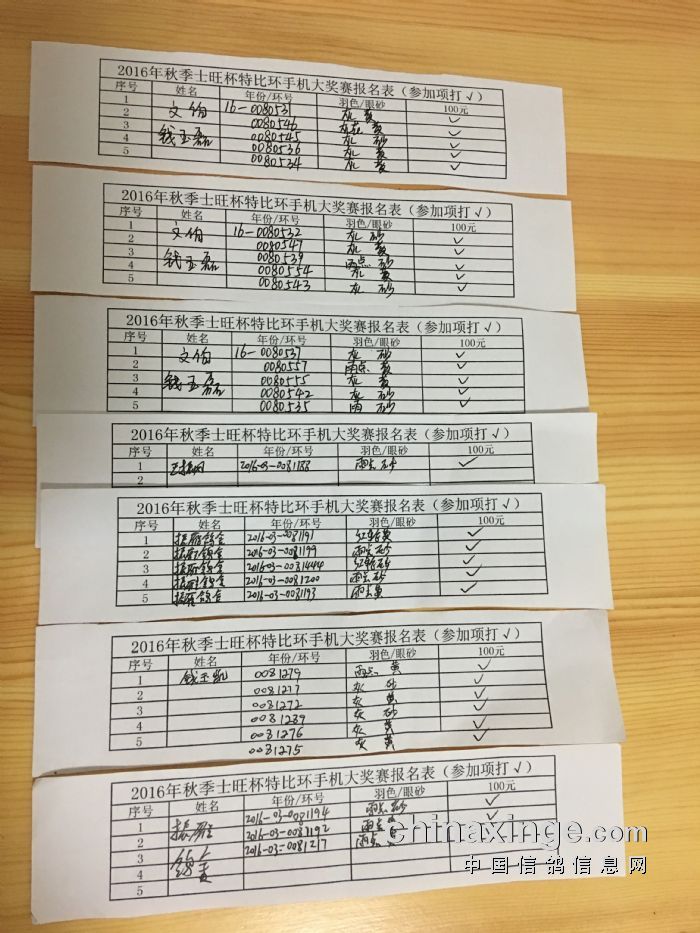 2016年秋季士旺杯特比环手机大奖赛报名表（参加项打√）
序号 姓名 年份/环号 羽色/眼砂 100元
1 文伯 16-0080531 灰 黄 ✓
2 0080546 灰花 黄 ✓
3 钱玉磊 0080545 灰 砂 ✓
4 0080536 灰 黄 ✓
5 0080534 灰 黄 ✓
2016年秋季士旺杯特比环手机大奖赛报名表（参加项打√）
序号 姓名 年份/环号 羽色/眼砂 100元
1 文伯 16-0080532 灰 砂 ✓
2 0080547 灰 黄 ✓
3 钱玉磊 0080539 雨点 砂 ✓
4 0080554 灰 黄 ✓
5 0080543 灰 砂 ✓
2016年秋季士旺杯特比环手机大奖赛报名表（参加项打√）
序号 姓名 年份/环号 羽色/眼砂 100元
1 文伯 16-0080537 灰 砂 ✓
2 0080557 雨点 黄 ✓
3 钱玉磊 0080555 灰 黄 ✓
4 0080542 灰 砂 ✓
5 0080535 雨 砂 ✓
2016年秋季士旺杯特比环手机大奖赛报名表（参加项打√）
序号 姓名 年份/环号 羽色/眼砂 100元
1 2016-03-0081188 雨点 砂 ✓
2
2016年秋季士旺杯特比环手机大奖赛报名表（参加项打√）
序号 姓名 年份/环号 羽色/眼砂 100元
1 2016-03-0081191 ✓
2 2016-03-0081199 雨点砂 ✓
3 2016-03-0081444 ✓
4 2016-03-0081200 雨点砂 ✓
5 2016-03-0081193 雨点黄 ✓
2016年秋季士旺杯特比环手机大奖赛报名表（参加项打√）
序号 姓名 年份/环号 羽色/眼砂 100元
1 钱玉凯 0081279 雨点 黄 ✓
2 0081217 灰 砂 ✓
3 0081272 灰 黄 ✓
4 0081289 灰 砂 ✓
5 0081276 灰 黄 ✓
0081275 灰 黄 ✓
2016年秋季士旺杯特比环手机大奖赛报名表（参加项打√）
序号 姓名 年份/环号 羽色/眼砂 100元
1 2016-03-0081194 雨点 砂 ✓
2 2016-03-0081192 雨点 ✓
3 2016-03-0081217 雨点
4
5
chinaxinge.com
中国信鸽信息网